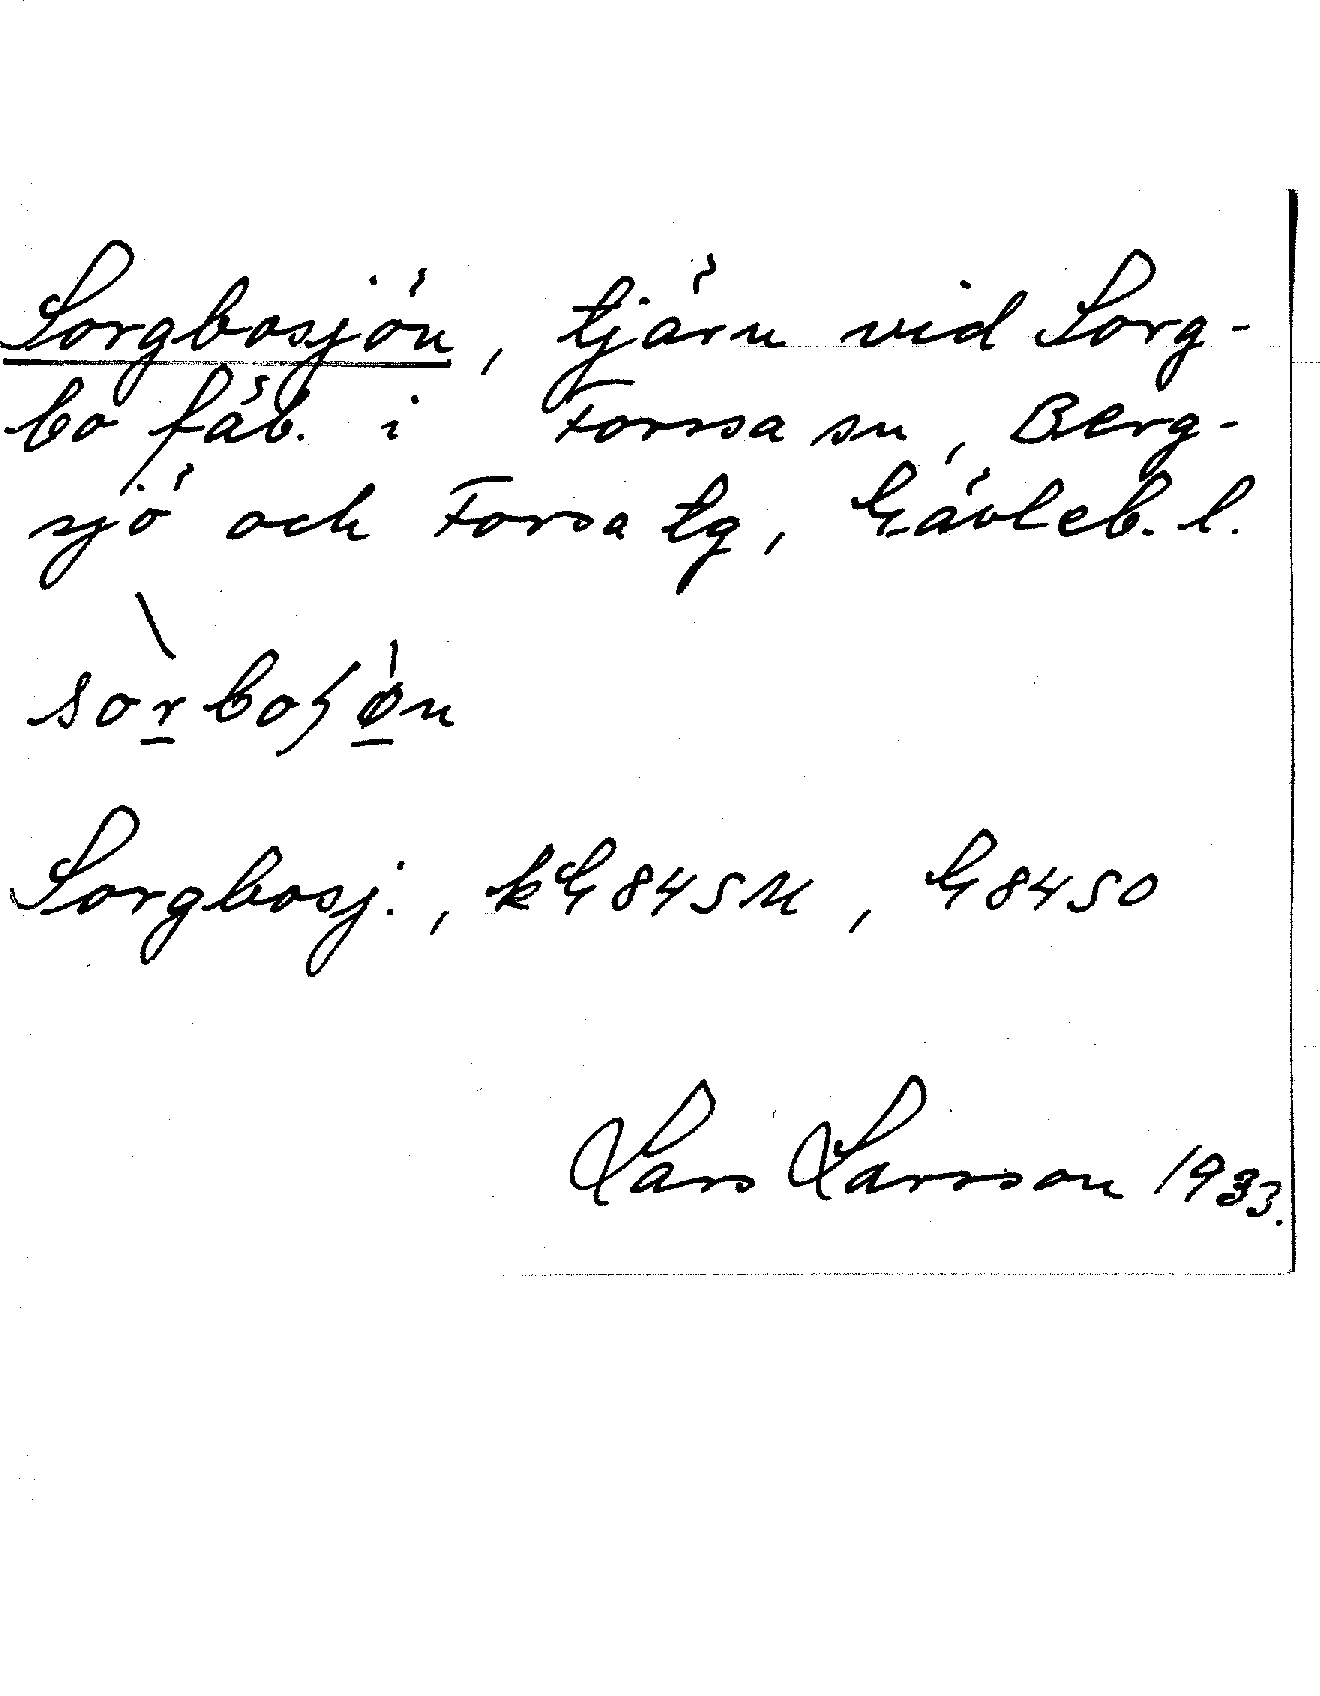 Sorgbosjön, tjärn vid Sorg-
bo fäb. i Forssa sn, Berg-
sjö och Forsa tg, Gävleb. l.
sòrboʃø̀n
Sorgbosj., kG 84 SU, G 84 SO
Lars Larsson 1933.